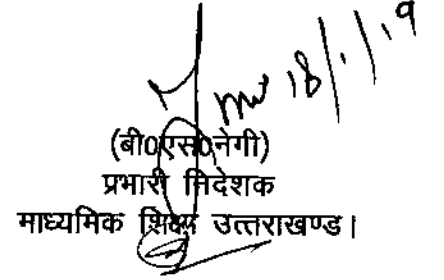 18/1/19
(बी0एस0नेगी)
प्रभारी निदेशक
माध्यमिक शिक्षा उत्तराखण्ड।